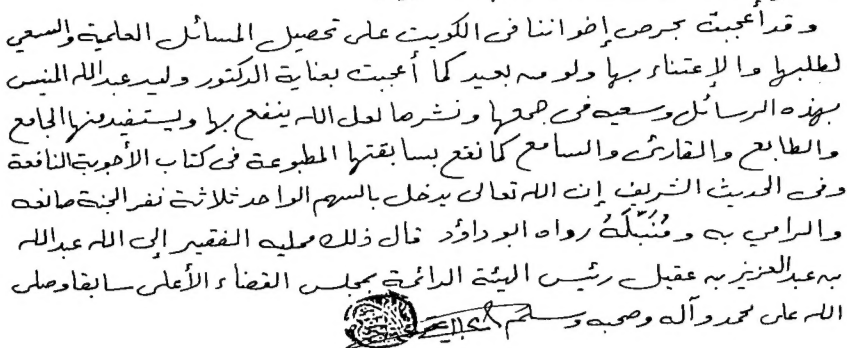 وقد أعجبت بحرص إخواننا في الكويت على تحصيل المسائل العلمية والسعي
لطلبها والإعتناء بها ولو من بعيد كما أعجبت بعناية الدكتور وليد عبدالله المنيس
بهذه الرسائل وسعيه في جمعها ونشرها لعل الله ينفع بها ويستفيد منها الجامع
والطابع والقارئ والسامع كما نفع بسابقتها المطبوعة في كتاب الأجوبة النافعة
وفي الحديث الشريف إن الله تعالى يدخل بالسهم الواحد ثلاثة نفر الجنة صانعه
والرامي به ومُنَبِّلَهُ رواه ابو داؤد قال ذلك ممليه الفقير إلى الله عبدالله
بن عبدالعزيز بن عقيل رئيس الهيئة الدائمة بمجلس القضاء الأعلى سابقا وصلى
الله على محمد وآله وصحبه وسلم